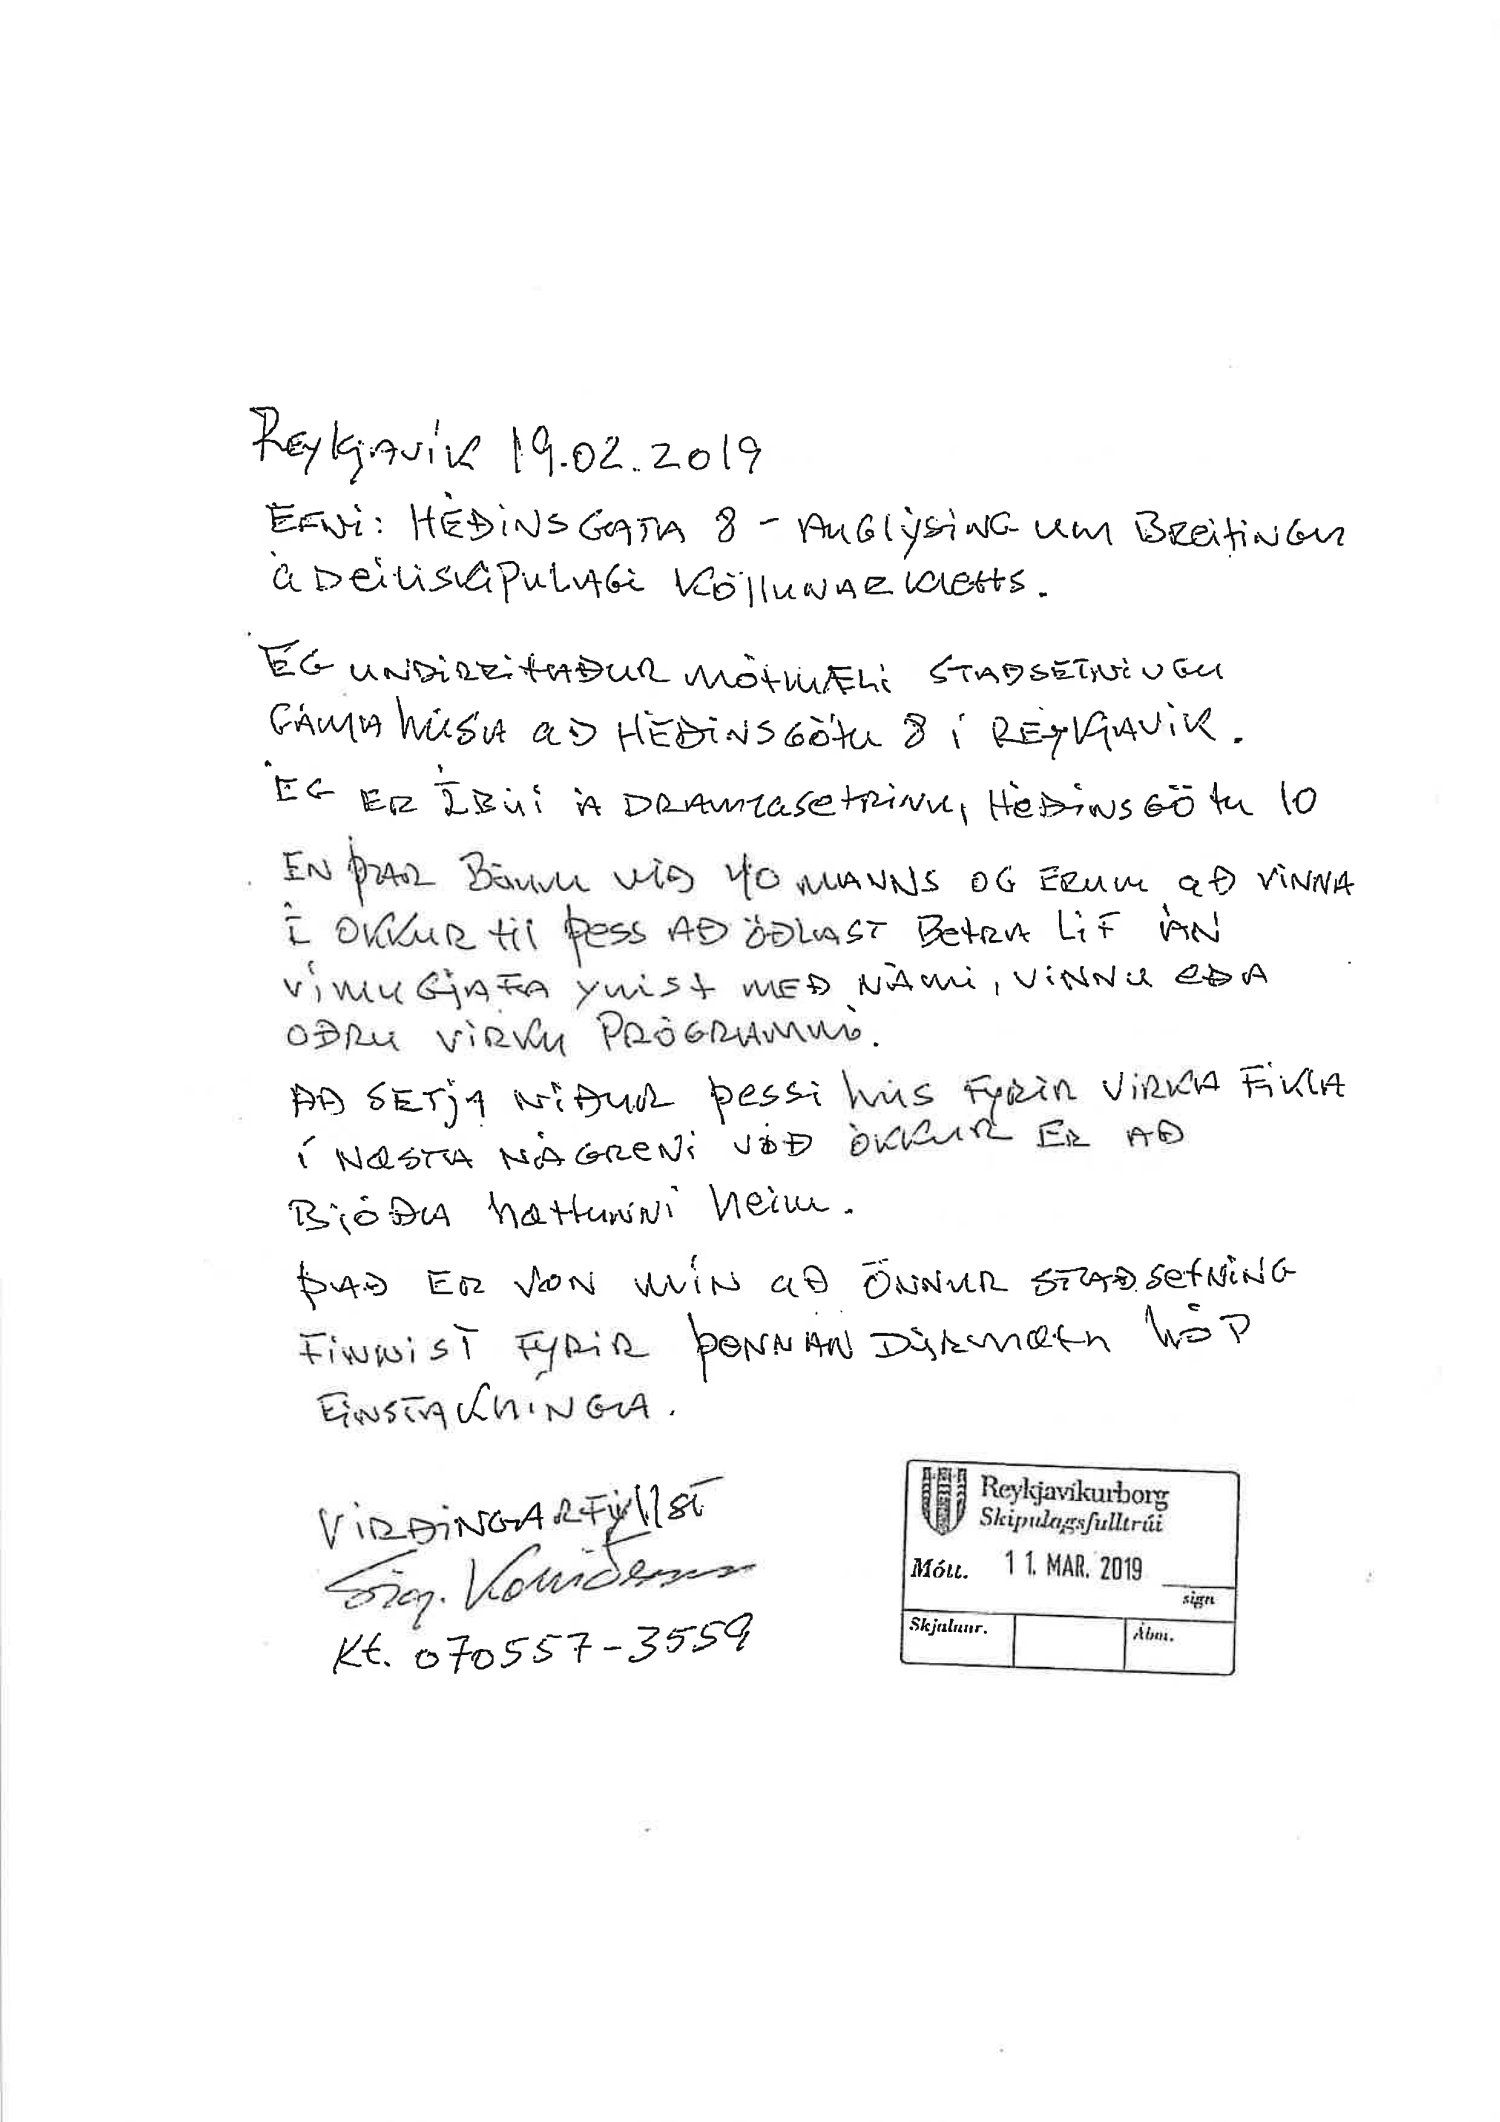 Reykjavík 19.02.2019
Efni: Héðinsgata 8 - Auglýsing um breitingu
á deiliskipulagi Köllunarkletts.
Ég undirritaður mótmæli staðsetningu
gámahúsa að Héðinsgötu 8 í Reykjavík.
Ég er íbúi á Draumasetrinu, Héðinsgötu 10
en þar búum við 40 manns og erum að vinna
í okkur til þess að öðlast betra líf án
vímugjafa ymist með námi, vinnu eða
oðru virku prógrammi.
Að setja niður þessi hús fyrir virka fikla
í næsta nágreni við okkur er að
bjóða hættunni heim.
Það er von mín að önnur staðsetning
finnist fyrir þennan dýrmæta hóp
einstaklinga.
Virðingarfyllst
Kt. 070557-3559
Reykjavíkurborg
Skipulagsfulltrúi
Mótt. 11. MAR. 2019
sign
Skjalnr. Ábm.